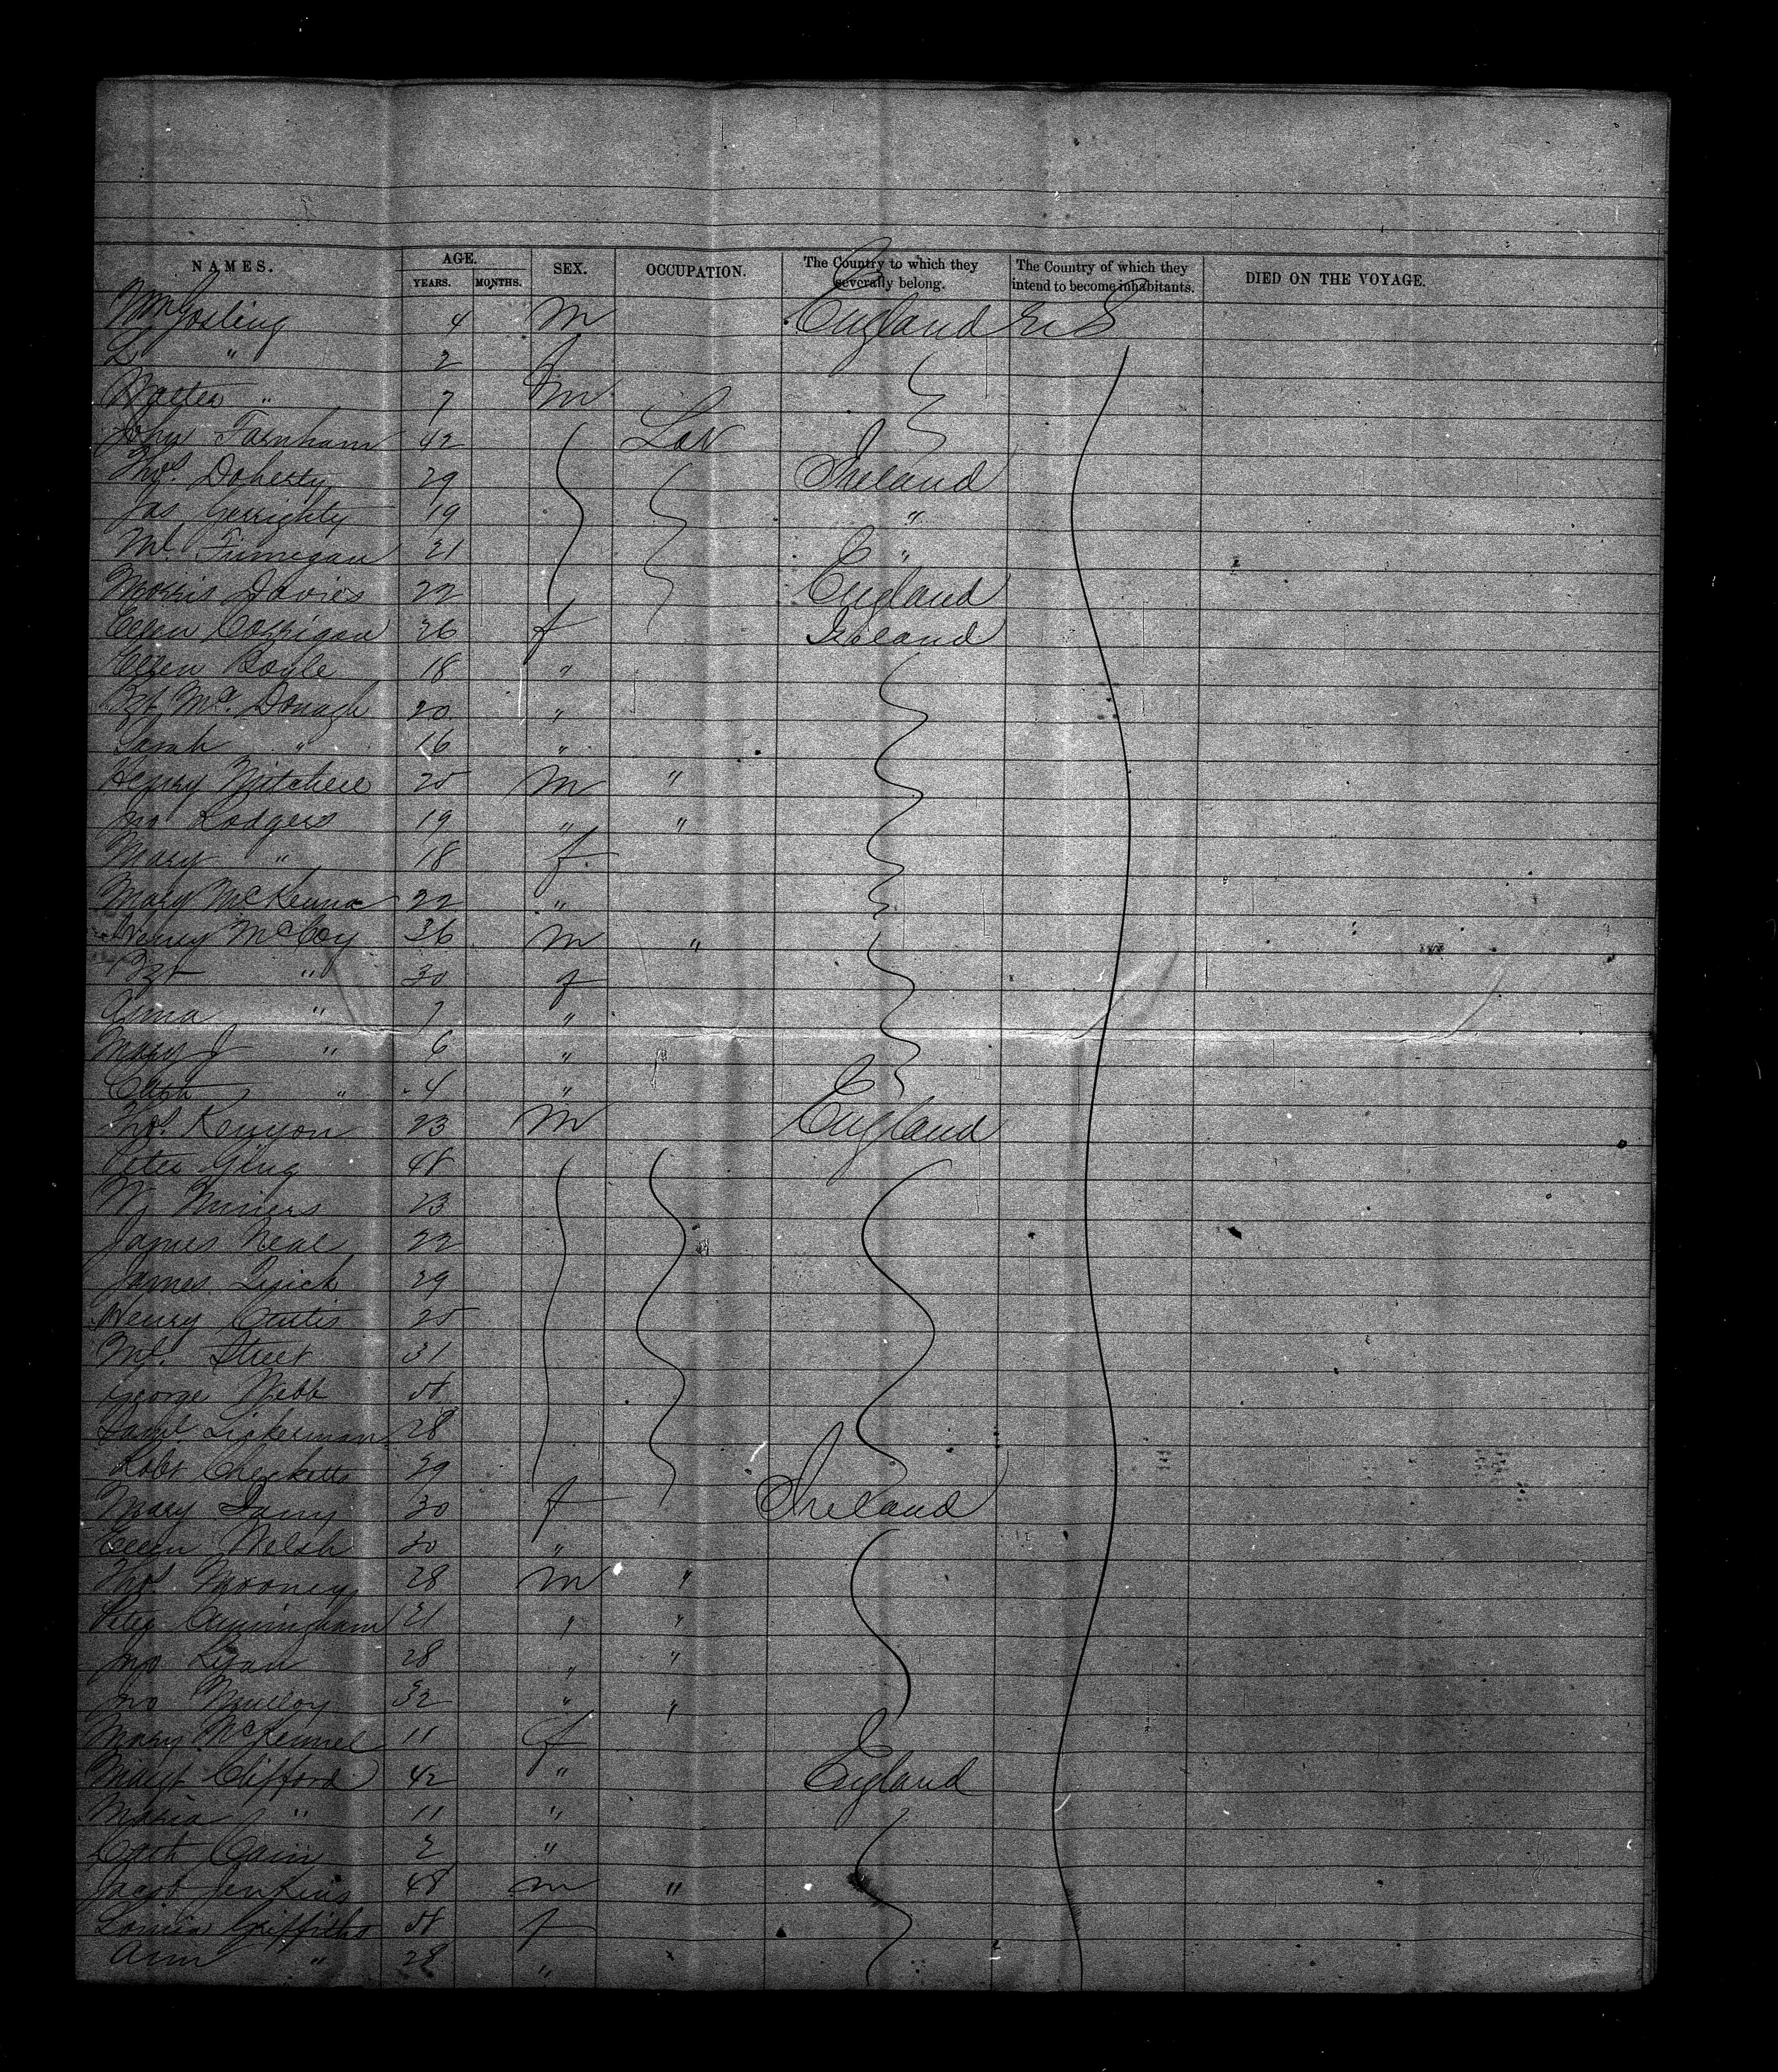 NAMES. AGE. SEX. OCCUPATION. The Country to which they severally belong. The Country of which they intend to become inhabitants. DIED ON THE VOYAGE.
YEARS. MONTHS.
Wm Gosling 4 m England U S
L " 2 f
Walter " 7 m
John Farnham 42 Lab
Thos. Doherty 29 Ireland
Jas Gerrighty 19 "
Ml Finnegan 21 "
Morris Davies 22 England
Ellen Corrigan 26 f Ireland
Ellen Boyle 18 "
Bgt Mc. Donagh 20 "
Sarah " 16 "
Henry Mitchell 25 m "
Jno Rodgers 19 " "
Mary " 18 f
Mary McKenna 22 "
Henry McCoy 36 m "
Bgt " 30 f
Anna " 7 "
Mary J " 6 "
Cath " 4 "
Thos. Kenyon 23 m England
Peter 48
Wm Miners 23
James Neal 22
James 29
Henry Curtis 25
Street 31
George Webb
Saml 28
Robt Checketts 29
Mary 30 f Ireland
Ellen Welsh 20 "
Thos Mooney 28 m "
Peter Cunningham 21 " "
Jno Ryan 28 " "
Jno Mulloy 32 " "
Mary 11 f
Margt Clifford 42 " England
Maria " 11 "
Cath Cain 2 "
Jacob Jenkins 48 m "
Louisa Griffiths f
Ann " 28 "